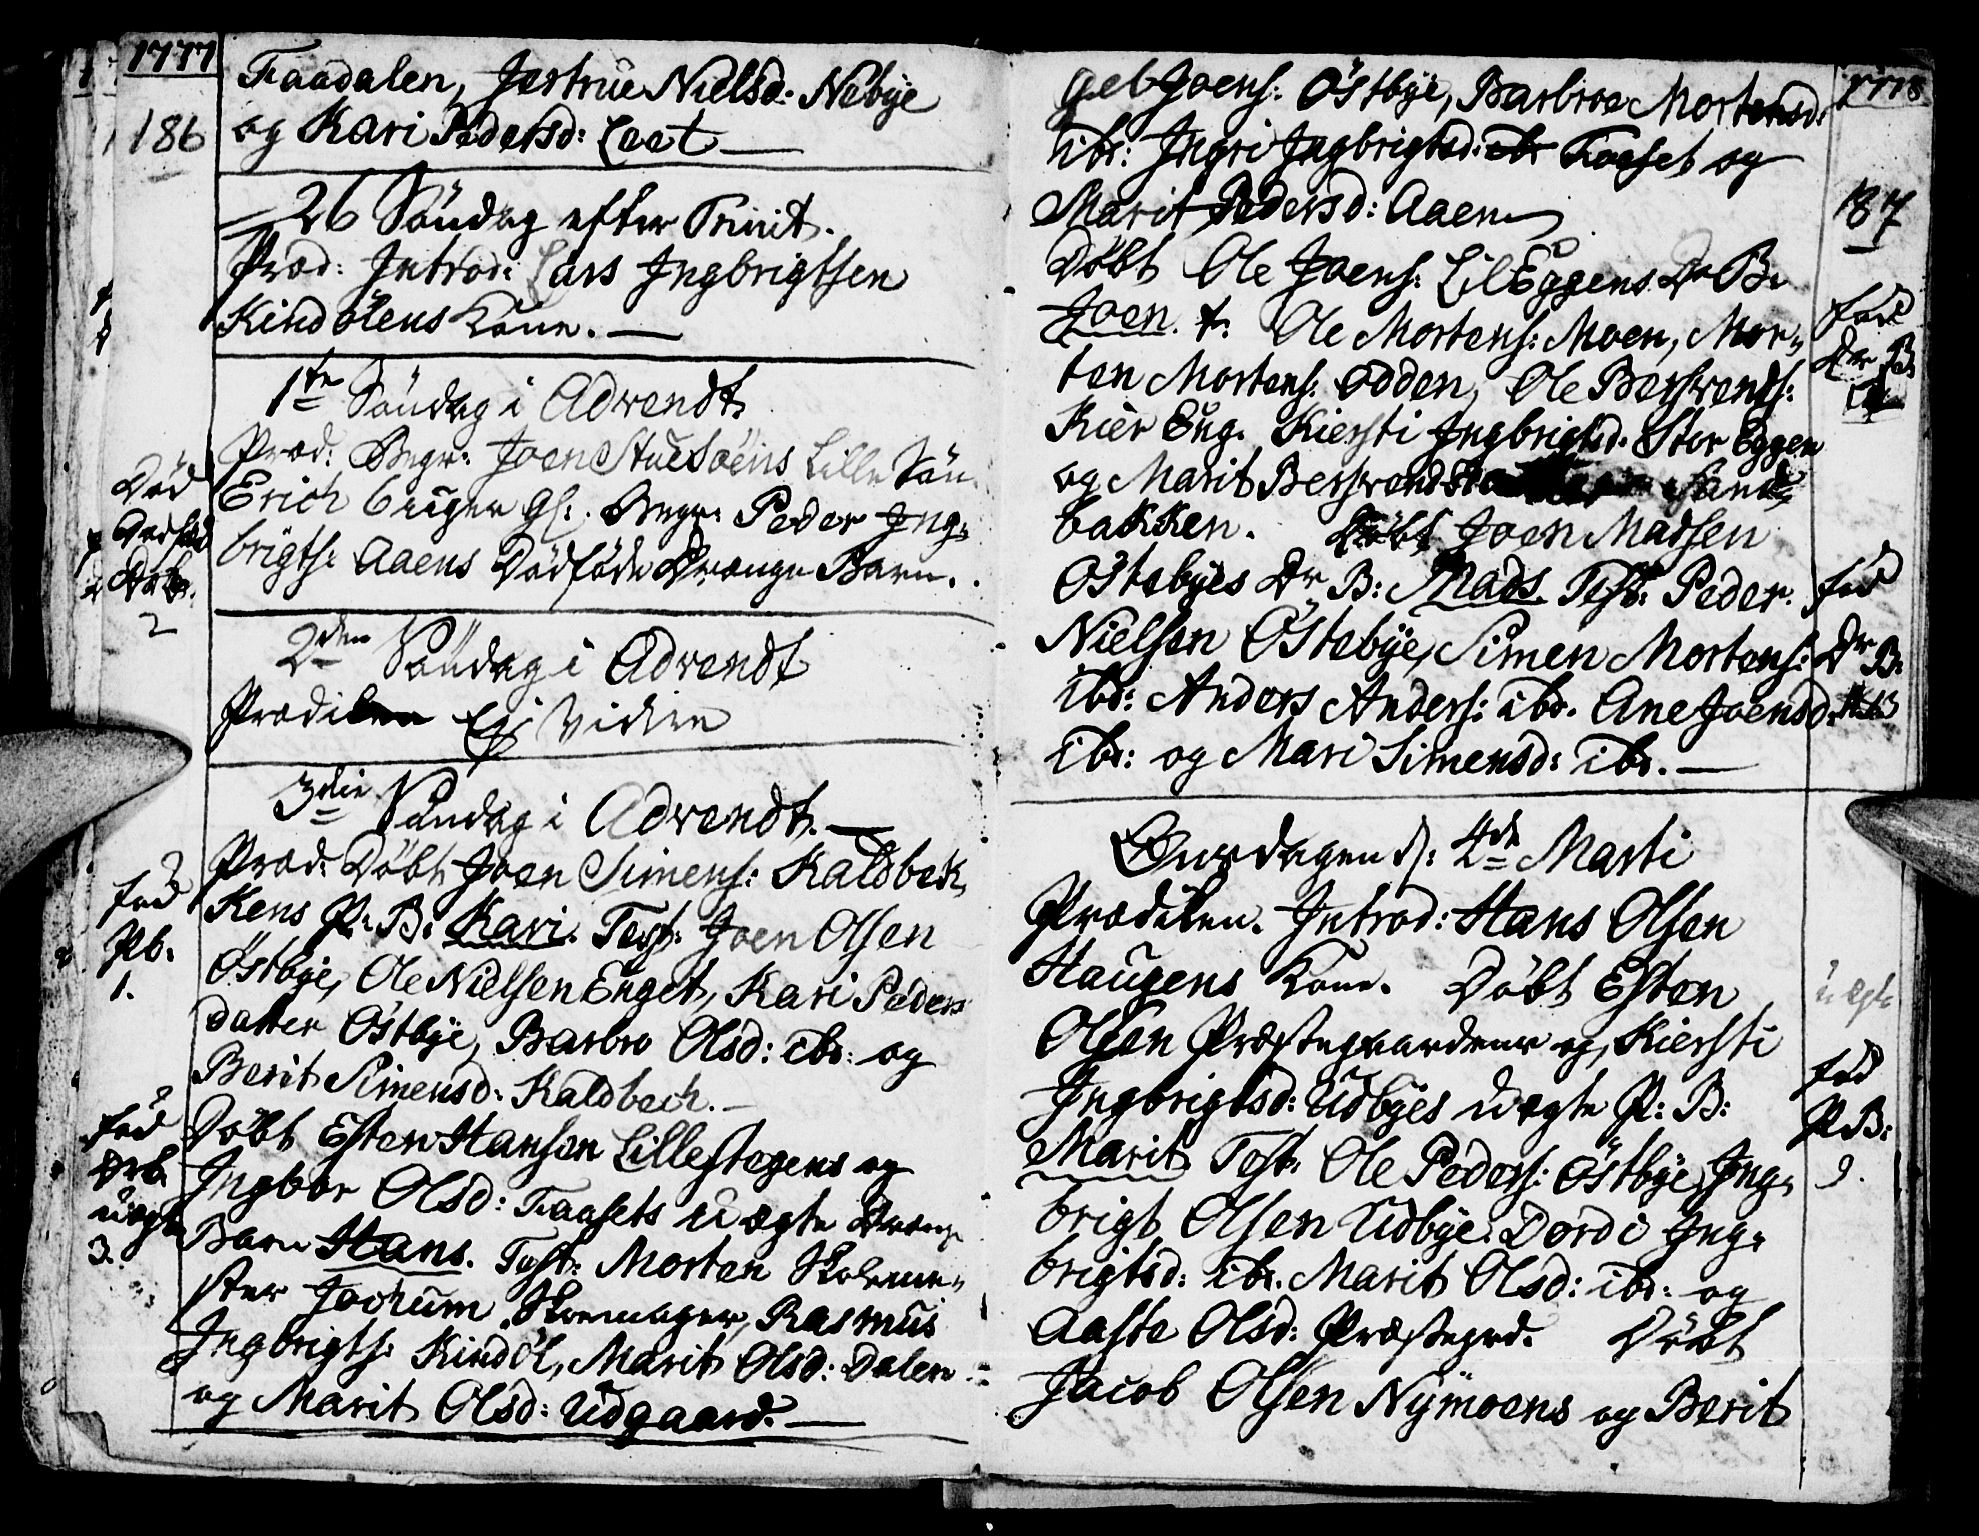 1777
186
Faadalen, Jertrue Nielsd: Nebÿe
og Kari Pedersd: Leet
26 Söndag efter Trinit.
Præd: Introd: Lars Ingbrigtsen
Kindölens Kone.
1te Söndag i Advendt
Præd: Begr: Joen Stuesöens Lille Sön
Erich 6 uger gl: Begr: Peder Ing-
brigts: Aaens Dödföde Drenge Barn.
Död
2
2den Söndag i Advendt
Prædiken Ej Viden
3die Söndag i Advendt.
Præd: Döbt Joen Simens: Kaldbek
Kens P: B: Kari. Test: Joen Olsen
Östbÿe, Ole Nielsen Enget, Kari Peders
datter Östbÿe, Barbro Olsd: ibd: og
Berit Simensd: Kaldbech.
Död
Pb.
1.
Döbt Esten Hansen Lillestegens og
Ingbor Olsd: Faasets uægte Drenge
Barn Hans. Test: Morten Skoleme-
ster Jochum Skomager, Rasmus
Ingbrigts: Kindöl, Marit Olsd: Dalen
og Marit Olsd: Udgaard.
föd
Drb.
uægte
3.
1778
187
geb Joens: Östbÿe, Barbroe Mortensd:
ibd: Ingri Ingbrigtsd: ibd Faaset og
Marit Pedersd: Aaen
Döbt Ole Joens: LilEggens Dr B:
Joen. t: Ole Mortens: Moen, Mor-
ten Mortens: Odden, Ole Bersvends:
Kier Eng. Kiersti Ingbrigtsd: Stor Eggen
og Marit Bersvendsd Sand-
bakken. Döbt Joen Madsen
Östebÿes Dr B: Mads. Test: Peder
Nielsen Östebÿe, Simen Mortens:
ibd: Anders Anders: ibd. Ane Joensd:
ibd: og Mari Simensd: ibd.
föd
Dr B:
föd
Dr B:
Onsdagen d: 4de Marti
Prædiken. Introd: Hans Olsen
Haugens Kone. Döbt Esten
Olsen Præstegaarden og Kiersti
Ingbrigtsd: Udbÿes uægte P: B:
Marit Test: Ole Peders: Östbÿe, Ing-
brigt Olsen Udbÿe. Dordi Ing-
brigtsd: ibd. Marit Olsd: ibd: og
Aaste Olsd: Præstegrd. Döbt
Jacob Olsen Nÿmoens og Berit
uægte
föd
P B:
9.